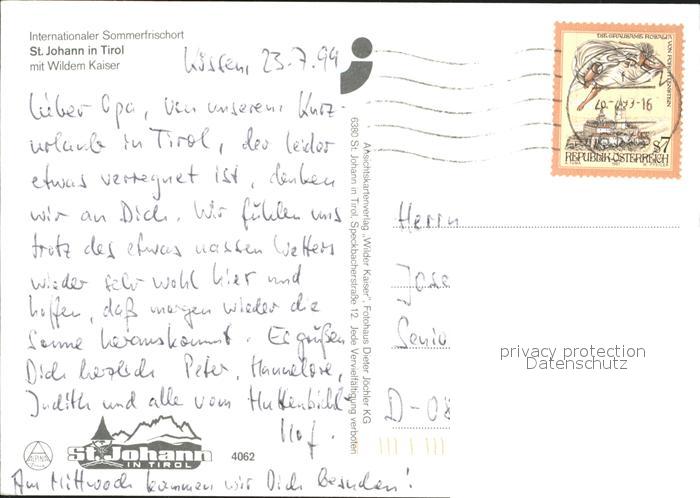 Internationaler Sommerfrischort
St. Johann in Tirol
mit Wildem Kaiser
Kössen, 23.7.99
Lieber Opa, von unserem Kurz-
urlaub in Tirol, der leider
etwas verregnet ist, denken
wir an Dich. Wir fühlen uns
trotz des etwas nassen Wetters
wieder sehr wohl hier und
hoffen, daß morgen wieder die
Sonne herauskommt. Es grüßen
Dich herzlich Peter, Hannelore,
Judith und alle vom Huttenbichl-
Hof.
Am Mittwoch kommen wir Dich besuchen!
St. Johann
IN TIROL
4062
Ansichtskartenverlag „Wilder Kaiser“, Fotohaus Dieter Jöchler KG
6380 St. Johann in Tirol, Speckbacherstraße 12. Jede Vervielfältigung verboten
DIE GRAUSAME ROSALIA
VON FORCHTENSTEIN
S7
REPUBLIK ÖSTERREICH
Herrn
Jose
Senio
D-08
privacy protection
Datenschutz